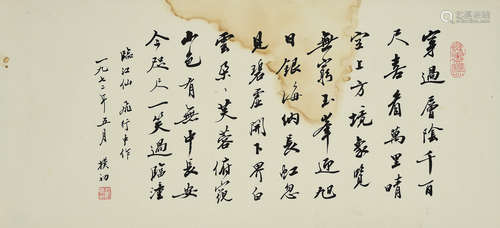 穿過層陰千百
尺喜看萬里晴
空上方境象覽
無窮玉峯迎旭
日銀海納長虹忽
見碧虛開下界白
雲朵朶芙蓉俯窺
山色有無中長安
今咫尺一笑過臨潼
臨江仙 飛行中作
一九七二年五月 樸初